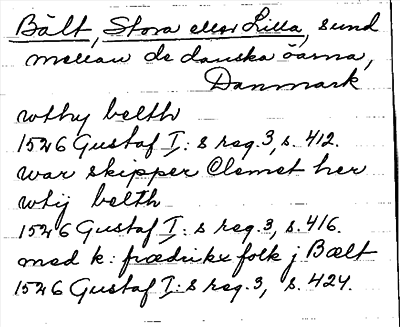 Bält, Stora eller Lilla, sund
mellan de danska öarna,
Danmark
wthy belth
1526 Gustaf I: s reg. 3, s. 412.
war skipper Clemet her
wtij belth
1526 Gustaf I: s reg. 3, s. 416.
med k: frædrikx folk j Bælt
1526 Gustaf I: s reg. 3, s. 424.